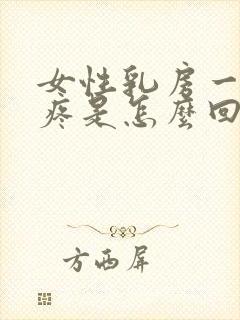 女性乳房一
疼是怎麽回
方西屏